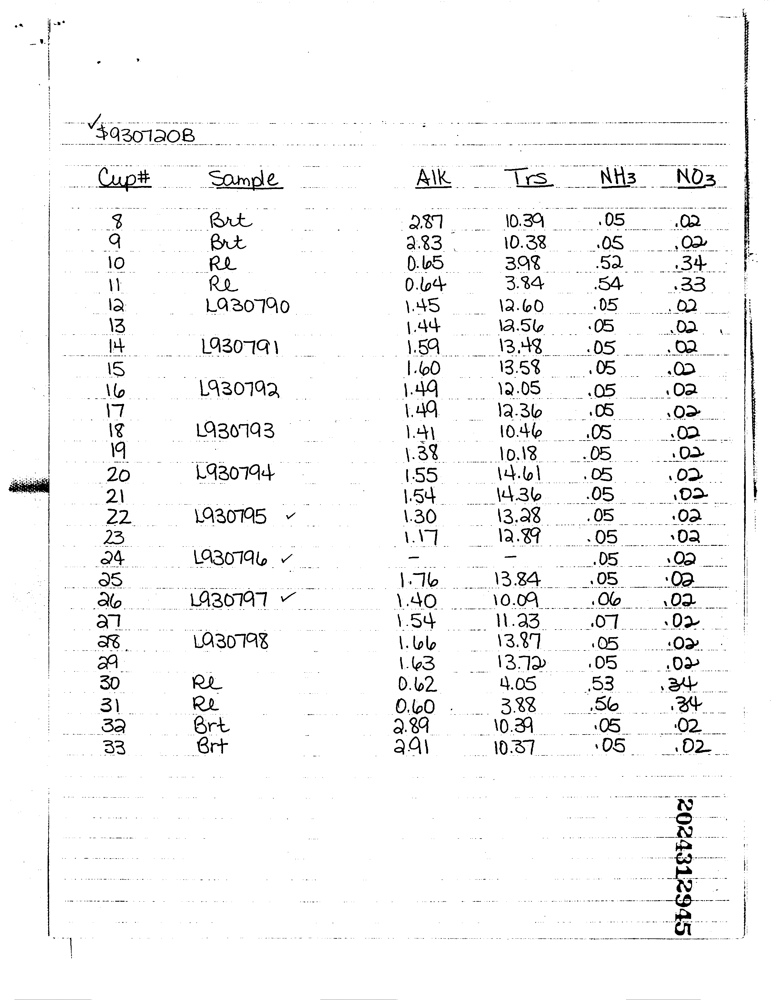 ✓$930720B
Cup# Sample Alk Trs NH3 NO3
8 Brt 2.87 10.39 .05 .02
9 Brt 2.83 10.38 .05 .02
10 Rl 0.65 3.98 .52 .34
11 Rl 0.64 3.84 .54 .33
12 L930790 1.45 12.60 .05 .02
13 1.44 12.56 .05 .02
14 L930791 1.59 13.48 .05 .02
15 1.60 13.58 .05 .02
16 L930792 1.49 12.05 .05 .02
17 1.49 12.36 .05 .02
18 L930793 1.41 10.46 .05 .02
19 1.38 10.18 .05 .02
20 L930794 1.55 14.61 .05 .02
21 1.54 14.36 .05 .02
22 L930795 ✓ 1.30 13.28 .05 .02
23 1.17 12.89 .05 .02
24 L930796 ✓ – – .05 .02
25 1.76 13.84 .05 .02
26 L930797 ✓ 1.40 10.09 .06 .02
27 1.54 11.23 .07 .02
28 L930798 1.66 13.87 .05 .02
29 1.63 13.72 .05 .02
30 Rl 0.62 4.05 .53 .34
31 Rl 0.60 3.88 .56 .34
32 Brt 2.89 10.39 .05 .02
33 Brt 2.91 10.37 .05 .02
2024312945